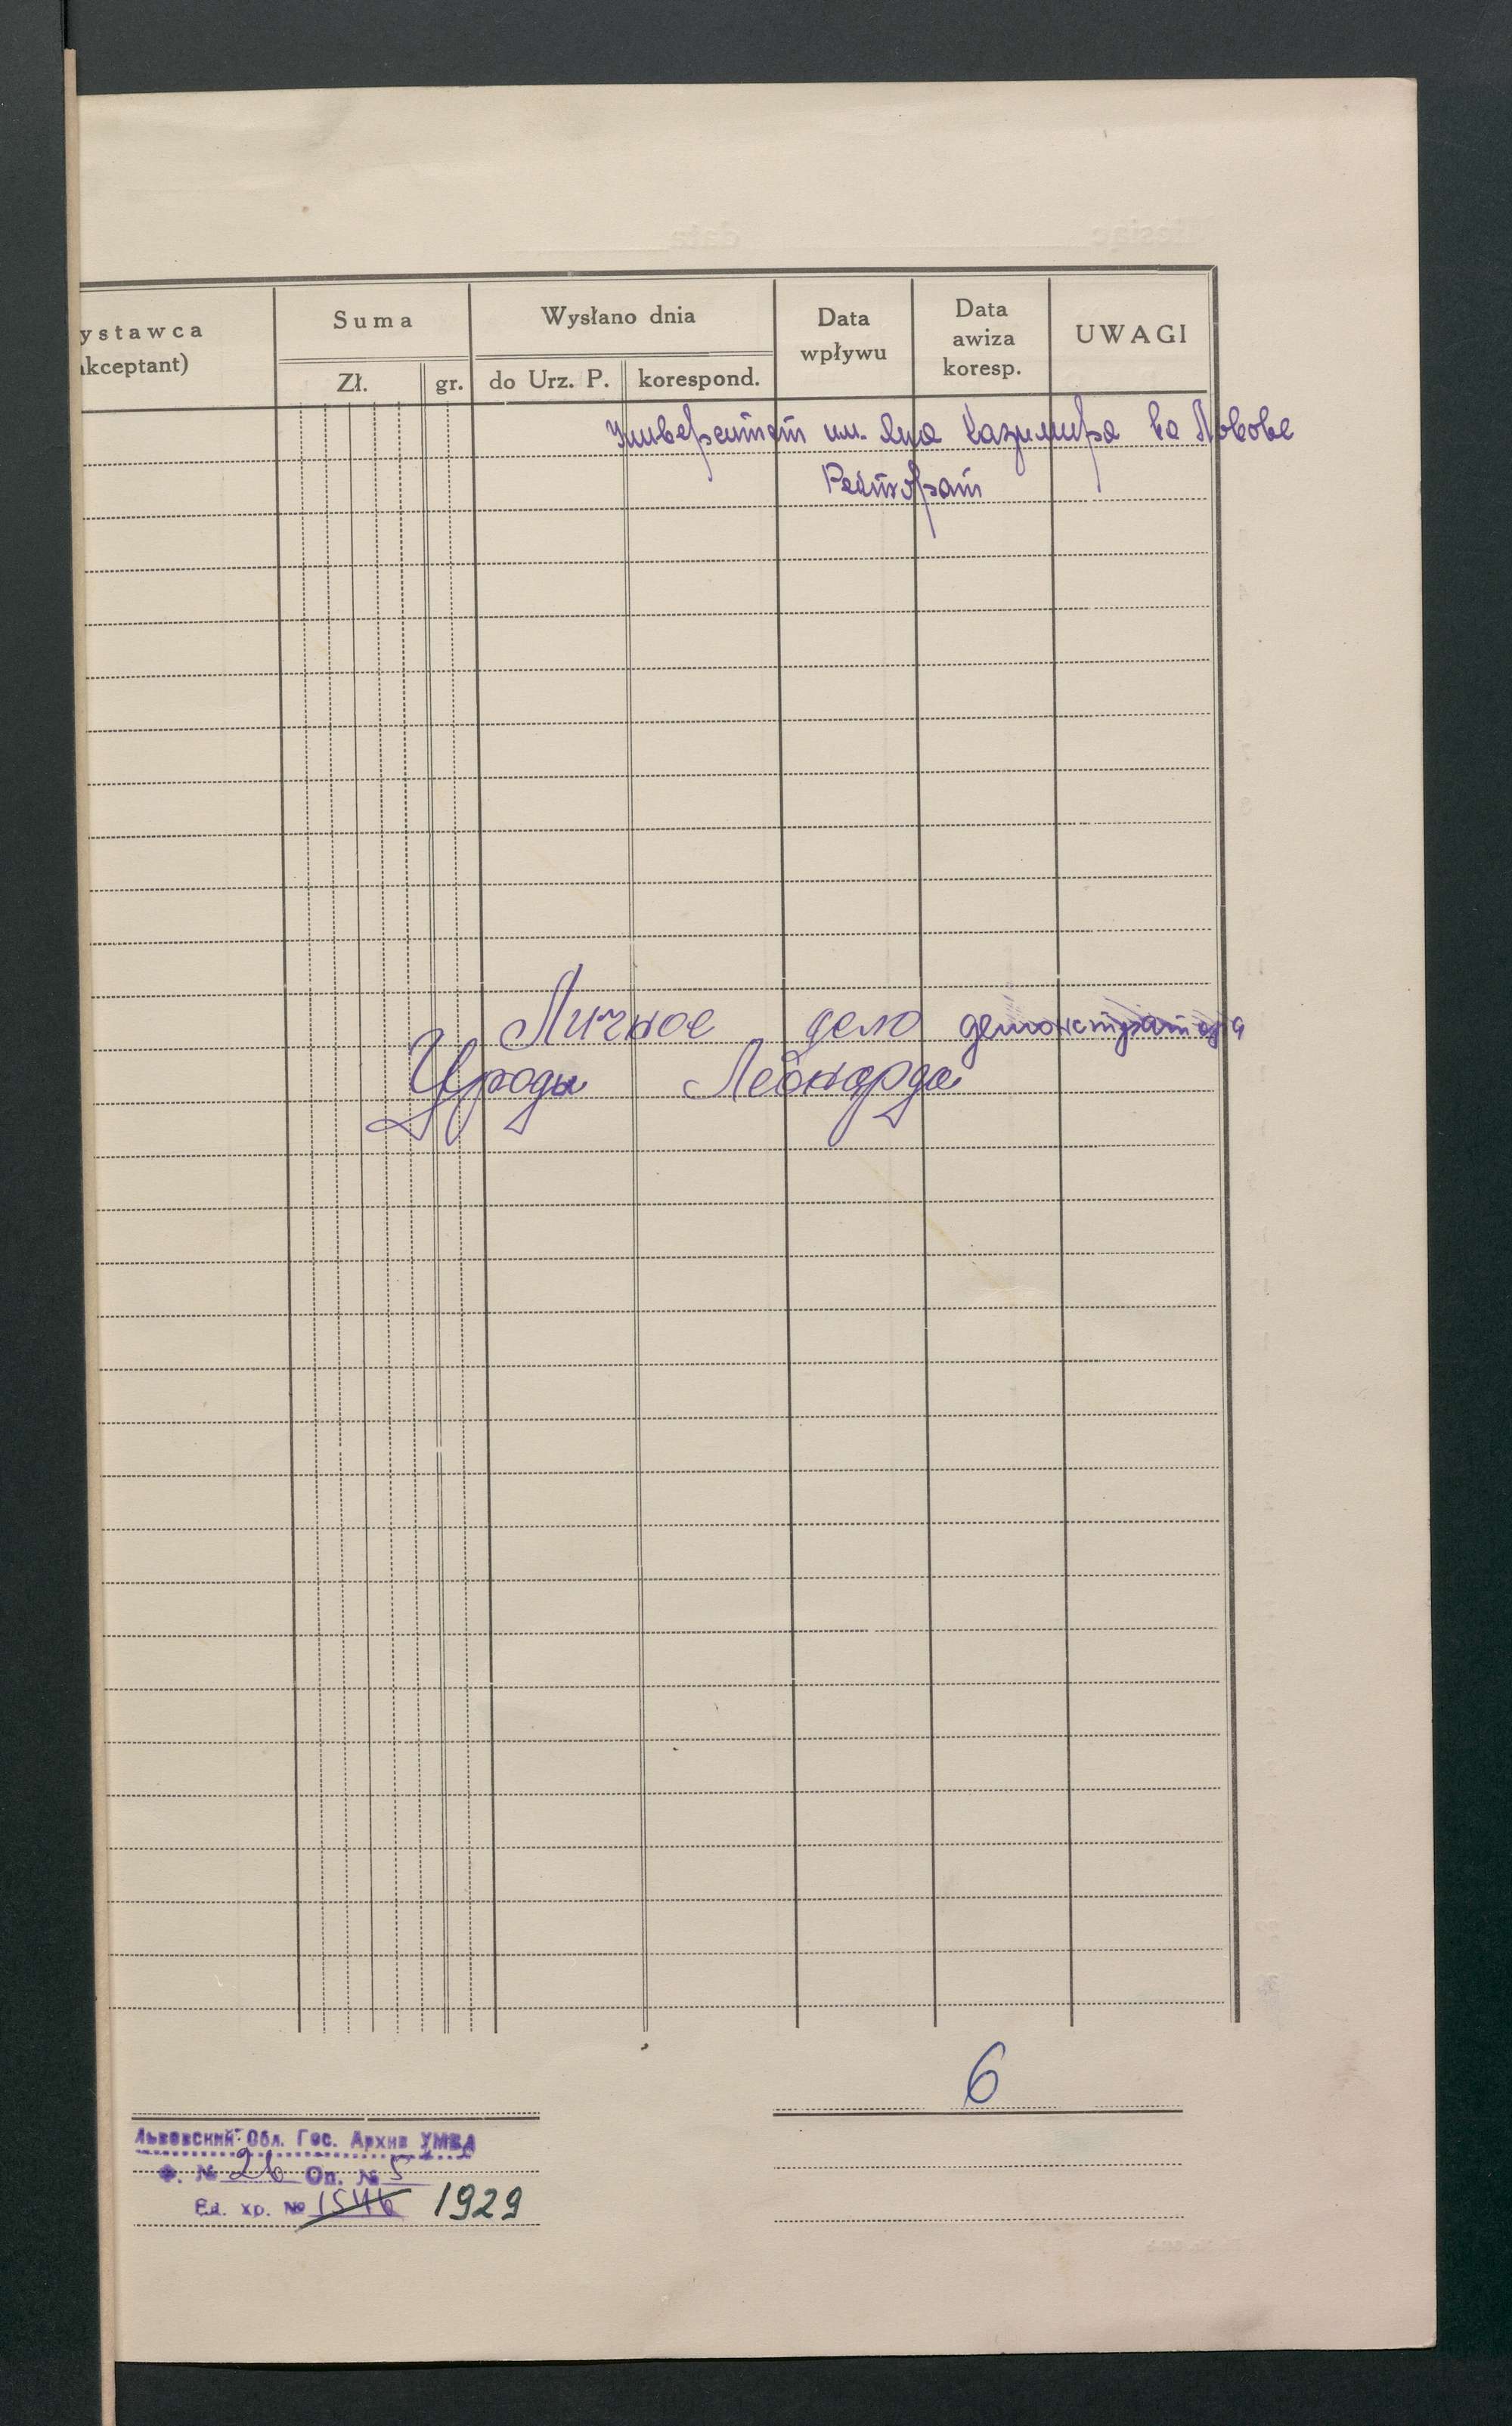 ystawca
akceptant)
Suma
Zł.
gr.
Wysłano dnia
do Urz. P.
korespond.
Data
wpływu
Data
awiza
koresp.
UWAGI
Университет им. Яна Казимира во Львове
Ректорат
Личное дело демонстратора
Уроды Леонарда
6
Львовский Обл. Гос. Архив УМВД
Ф. № 26 Оп. № 5
Ед. хр. № 1546 1929